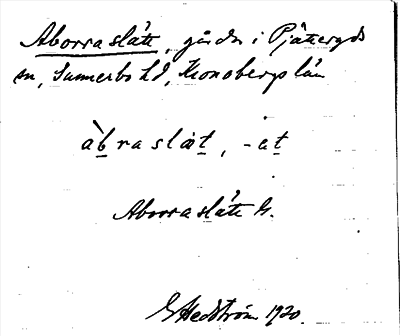 Aborraslätt, gård i Pjätteryds
sn, Sunnerbo hd, Kronobergs län
àbraslät, -et
Aborraslätt G.
G Hedström 1920.